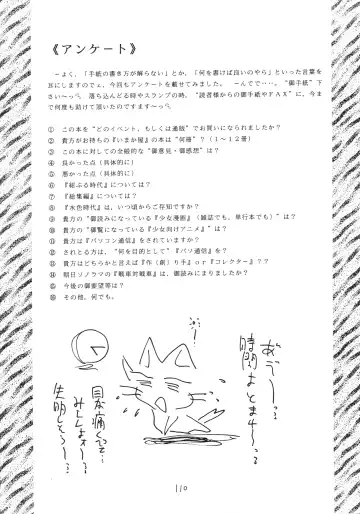 《アンケート》
－よく、「手紙の書き方が解らない」とか、「何を書けば良いのやら」といった言葉を
耳にしますのでぇ、今回もアンケートを載せてみました。 －んでで……、“御手紙”下
さい～～っ。落ち込んだる時やスランプの時、“読者様からの御手紙やFAX”に、今ま
で何度も助けて頂いたのですます～～っ。
① この本を“どのイベント、もしくは通販”でお買いになられましたか?
② 貴方がお持ちの『いまか屋』の本は“何冊”?(1～12冊)
③ この本に対しての全般的な“御意見・御感想”は?
④ 良かった点(具体的に)
⑤ 悪かった点(具体的に)
⑥ 『総ぶる時代』については?
⑦ 『総集編』については?
⑧ 『水色時代』は、いつ頃からご存知ですか?
⑨ 貴方の“御読みになっている『少女漫画』(雑誌でも、単行本でも)”は?
⑩ 貴方の“御覧になっている『少女向けアニメ』”は?
⑪ 貴方は『パソコン通信』をされていますか?
⑫ されとる方は、“何を目的として”『パソ通信』を?
⑬ 貴方はどちらかと言えば『作(創)り手』or『コレクター』?
⑭ 朝日ソノラマの『戦車対戦車』は、御読みにまりましたか?
⑮ 今後の御要望等は?
⑯ その他、何でも。
時間よとまれーっっ
目が痛くて…
失明しそうー…?
110